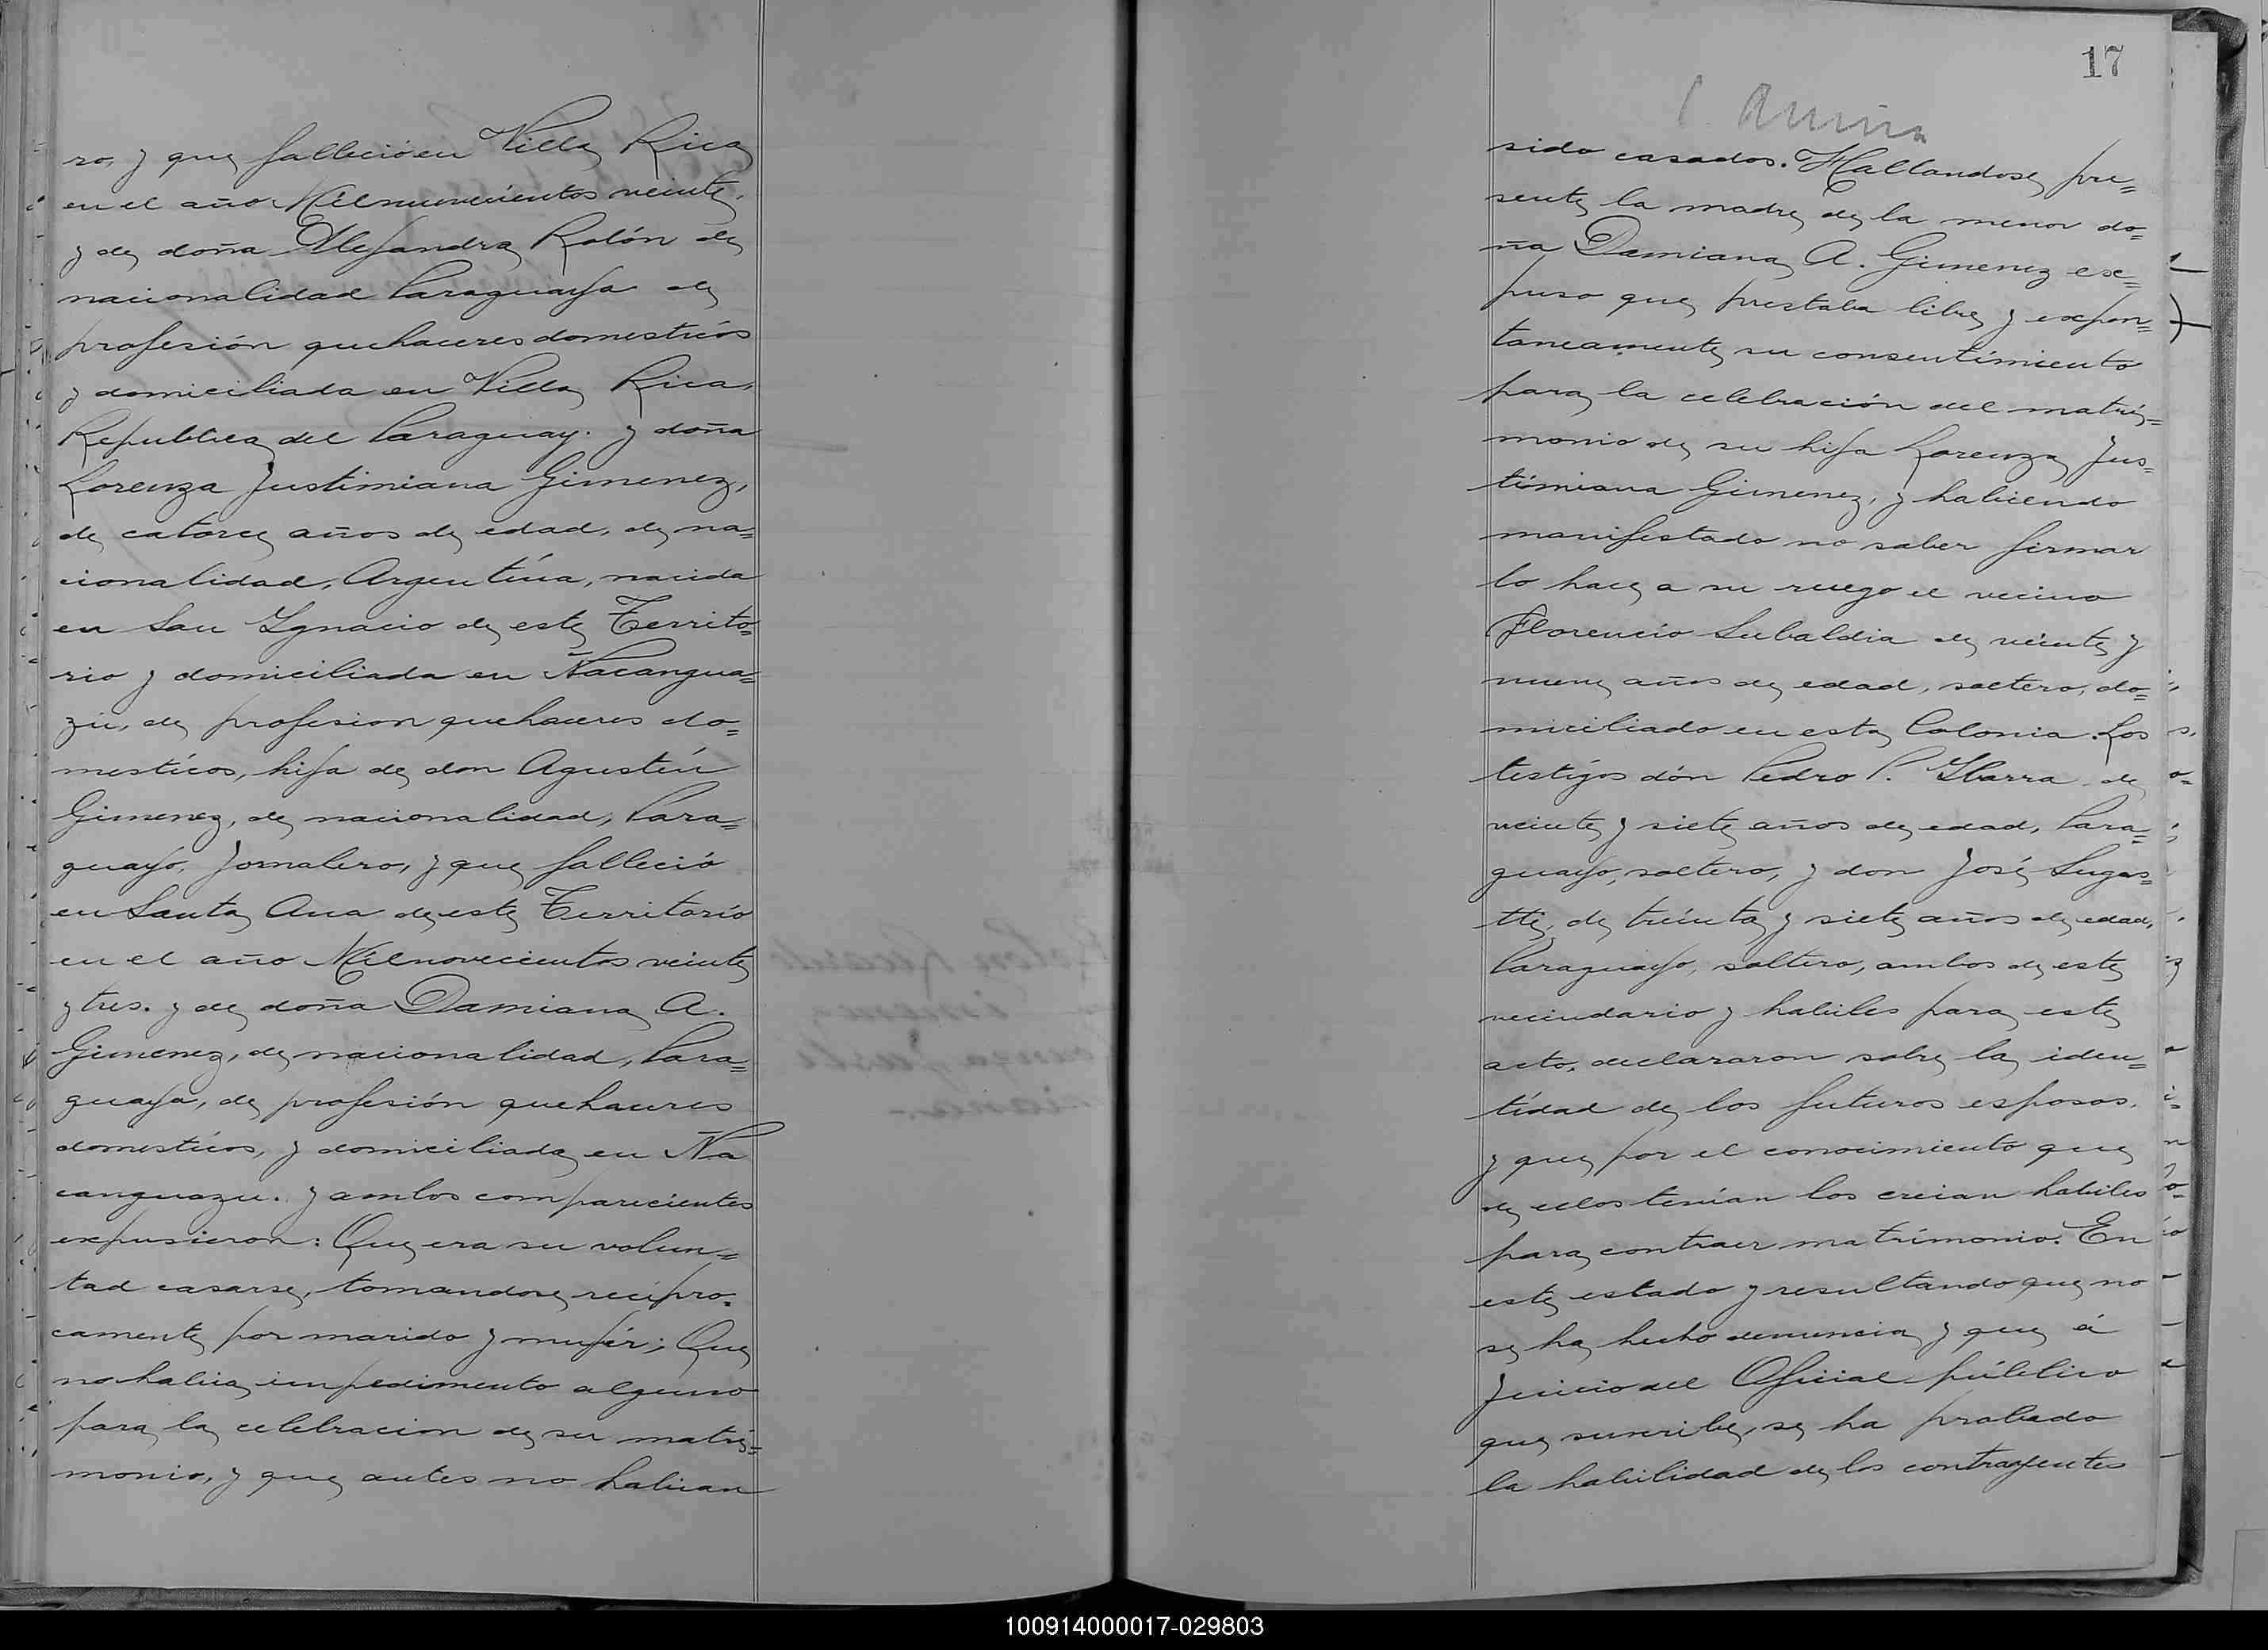 ro, y que fallecio en Villa Rica
en el año Milnuevecientos veinte,
y de doña Alejandra Rolón de
nacionalidad Paraguaya de
profesión quehaceres domesticos
y domiciliada en Villa Rica,
Republica del Paraguay. y doña
Lorenza Justimiana Gimenez,
de catorce años de edad, de na=
cionalidad, Argentina, nacida
en San Ygnacio de este Territo=
rio y domiciliada en Ñacangua=
zu, de profesion quehaceres do=
mesticos, hija de don Agustín
Gimenez, de nacionalidad, Para=
guayo, Jornalero, y que falleció
en Santa Ana de este Territorio
en el año Milnovecientos veinte
y tres. y de doña Damiana A.
Gimenez, de nacionalidad, Para=
guaya, de profesión quehaceres
domesticos, y domiciliada en Ña
canguazu. y ambos comparecientes
expusieron: Que era su volun=
tad casarse, tomandose recipro=
camente por marido y mujér; Que
no habia impedimento alguno
para la celebracion de su matri=
monio, y que antes no habian
17
sido casados. Hallandose pre=
sente la madre de la menor do=
ña Damiana A. Gimenez ex=
puso que prestaba libre y expon=
taneamente su consentimiento
para la celebración del matri=
monio de su hija Lorenza Jus=
timiana Gimenez, y habiendo
manifestado no saber firmar
lo hace a su ruego el vecino
Florencio Subaldia de veinte y
nueve años de edad, soltero, do=
miciliado en esta Colonia. Los
testigos dón Pedro P. Ybarra de
veinte y siete años de edad, Para=
guayo, soltero, y don José Sugas=
tti, de treinta y siete años de edad,
Paraguayo, soltero, ambos de este
vecindario y habiles para este
acto, declararon sobre la iden=
tidad de los futuros esposos,
y que por el conocimiento que
de ellos tenían los creian habiles
para contraer matrimonio. En
este estado y resultando que no
se ha hecho denuncia y que á
Juicio del Oficial público
que suscribe, se ha probado
la habilidad de los contrayentes
100914000017-029803